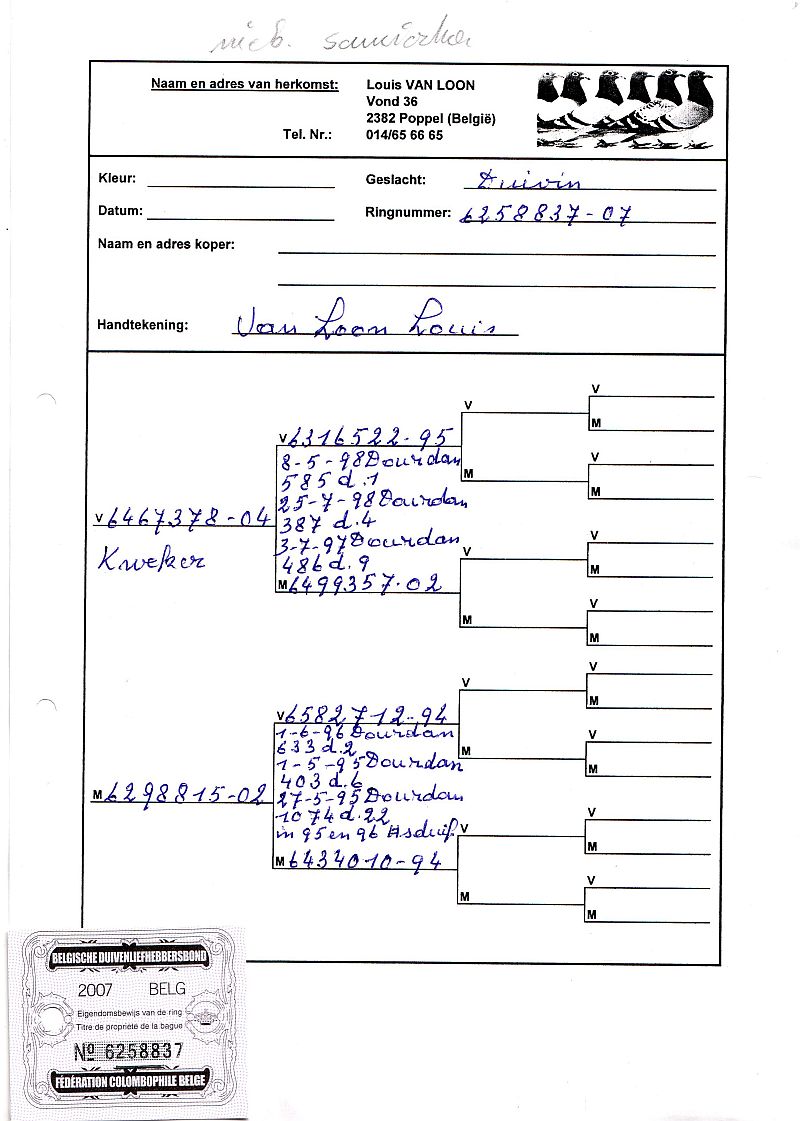 nieb. samiczka
Naam en adres van herkomst: Louis VAN LOON
Vond 36
2382 Poppel (België)
Tel. Nr.: 014/65 66 65
Kleur:
Geslacht: Duivin
Datum:
Ringnummer: 6258837-07
Naam en adres koper:
Handtekening: Van Loon Louis
V 6467378-04
Kweker
V 6316522-95
8-5-98 Dourdan
585 d.1
25-7-98 Dourdan
387 d.4
3-7-97 Dourdan
486 d.9
M 6499357-02
V
V
M
M
V
M
V
V
M
M
V
M
M 6298815-02
V 6582712-94
1-6-96 Dourdan
633 d.2
1-5-95 Dourdan
403 d.6
27-5-95 Dourdan
1074 d.22
in 95 en 96 Asduif
M 6434010-94
V
V
M
M
V
M
V
V
M
M
V
M
BELGISCHE DUIVENLIEFHEBBERSBOND
2007 BELG
Eigendomsbewijs van de ring
Titre de propriété de la bague
Nº 6258837
FÉDÉRATION COLOMBOPHILE BELGE